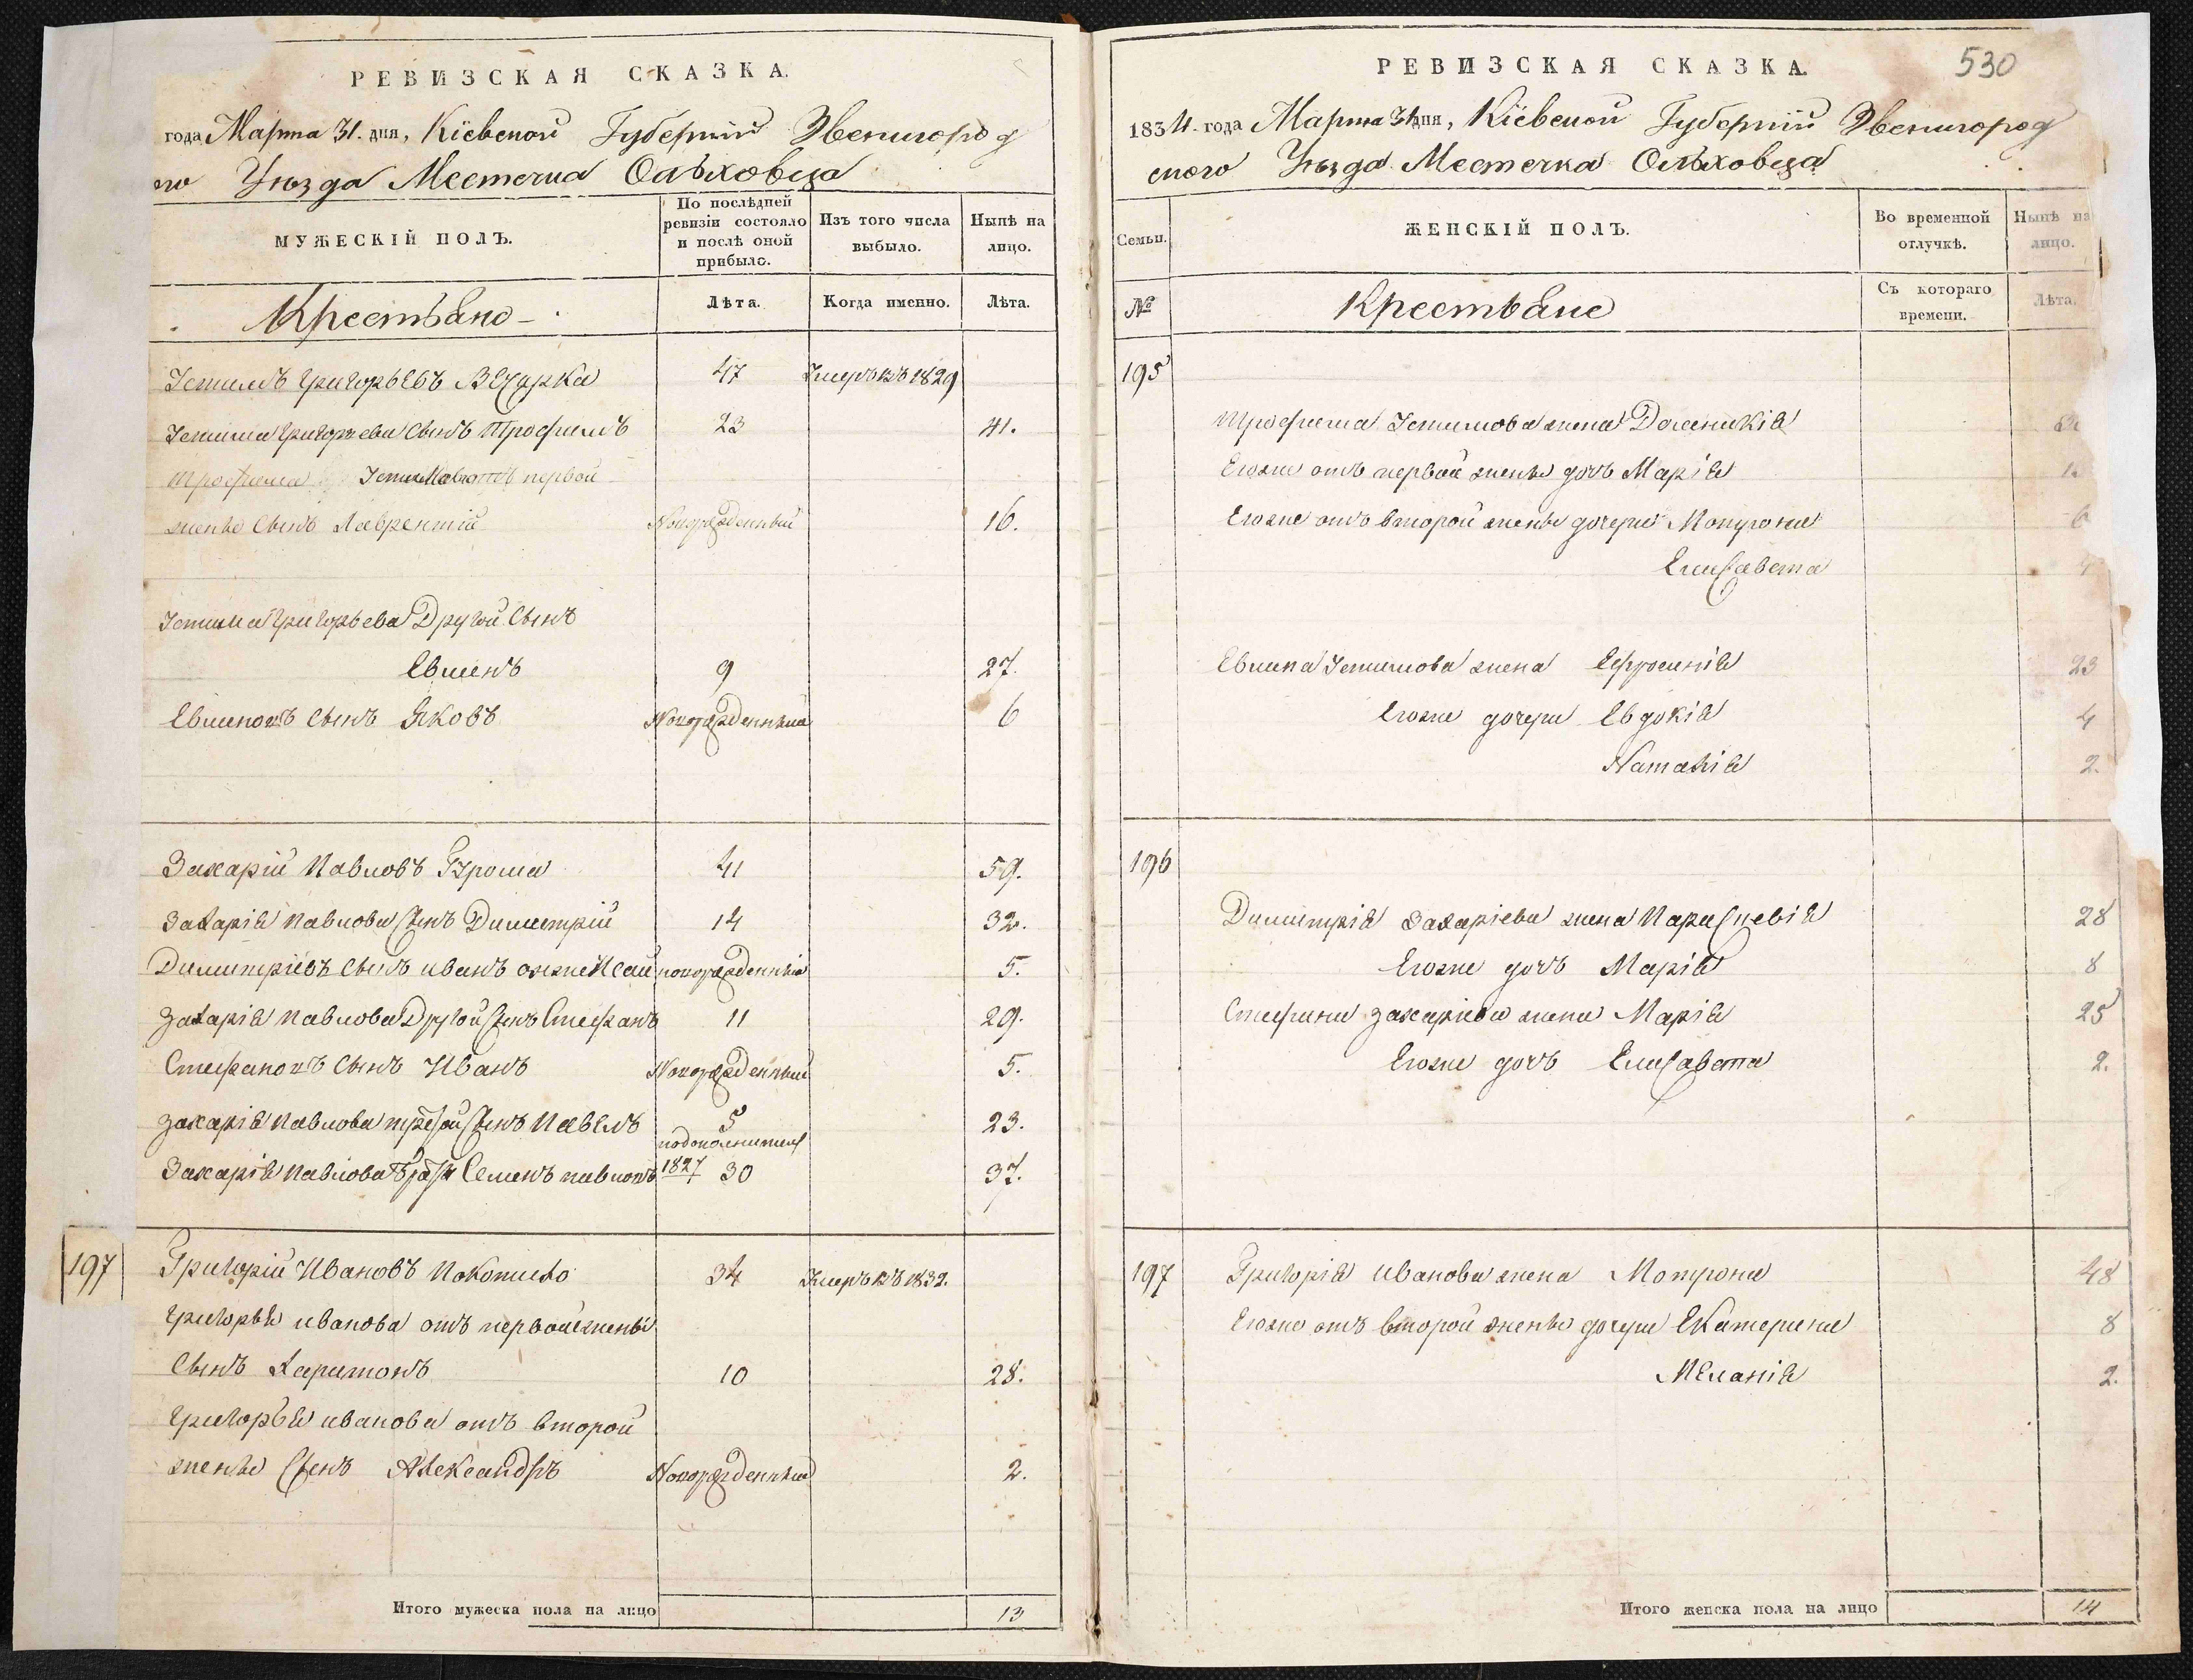 РЕВИЗСКАЯ СКАЗКА.
года Марта 31. дня, Кіевской Губерніи Звенигород
го Уѣзда Местечка Ольховца
МУЖЕСКІЙ ПОЛЪ.
По послѣдней ревизіи состояло и послѣ оной прибыло.
Изъ того числа выбыло.
Нынѣ на лицо.
Крестьяне
Лѣта.
Когда именно.
Лѣта.
Устимъ Григорьевъ 47 Умеръ въ 1829
Устима Григорьева Сынъ Трофимъ 23 41.
Трофима Устимова отъ первой
жены Сынъ Лаврентій Новорожденный 16.
Устима Григорьева Другой Сынъ
Евменъ 9 27.
Евменовъ Сынъ Яковъ Новорожденный 6
Захарій Павловъ 41 59.
Захарія Павлова Сынъ Димитрій 14 32.
Димитріевъ Сынъ Иванъ онже Исай новорожденный 5.
Захарія Павлова Другой Сынъ Стефанъ 11 29.
Стефановъ Сынъ Иванъ Новорожденный 5.
Захарія Павлова третій Сынъ Павелъ 5 23.
Захарія Павлова братъ Семенъ павловъ 1827 30 37.
197 Григорій Ивановъ 34 Умеръ въ 1832.
Григорья иванова отъ первой жены
Сынъ Харитонъ 10 28.
Григорья иванова отъ второй
жены Сынъ Александръ Новорожденный 2.
Итого мужеска пола на лицо 13
530
РЕВИЗСКАЯ СКАЗКА.
1834. года Марта 31 дня, Кіевской Губерніи Звенигород
ского Уѣзда Местечка Ольховца
Семьи.
ЖЕНСКІЙ ПОЛЪ.
Во временной отлучкѣ.
Нынѣ на лицо.
№
Крестьяне
Съ котораго времени.
Лѣта.
195
Трофима Устимова жена Доминикія
Егоже отъ первой жены дочь Марія
Егоже отъ второй жены дочери Мотрона 6
Елисавета
Евмена Устимова жена Ефросинія 23
Егоже дочери Евдокія 4
Наталія 2.
196
Димитрія Захаріева жена Параскевія 28
Егоже дочь Марія 8
Стефана Захаріева жена Марія 25
Егоже дочь Елисавета 2.
197 Григорія Иванова жена Мотрона 48
Егоже отъ второй жены дочери Екатерина 8
Меланія 2.
Итого женска пола на лицо 14